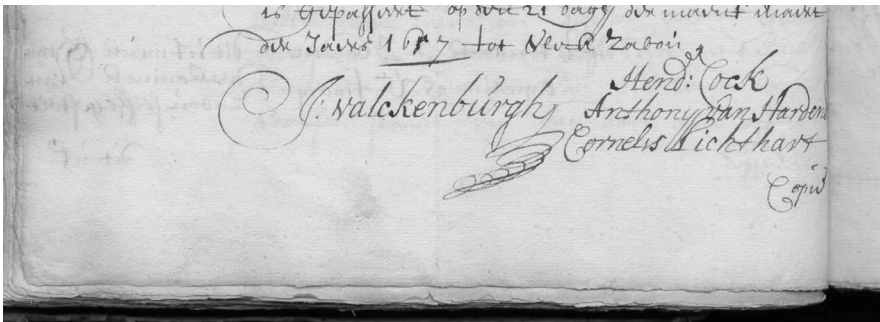 is gepasseert op den 21 dagh der maent maert
des Jaers 1657 tot
J: valckenburgh
Hend: Cock
Anthony van Harden
Cornelis Lichthart
Copid